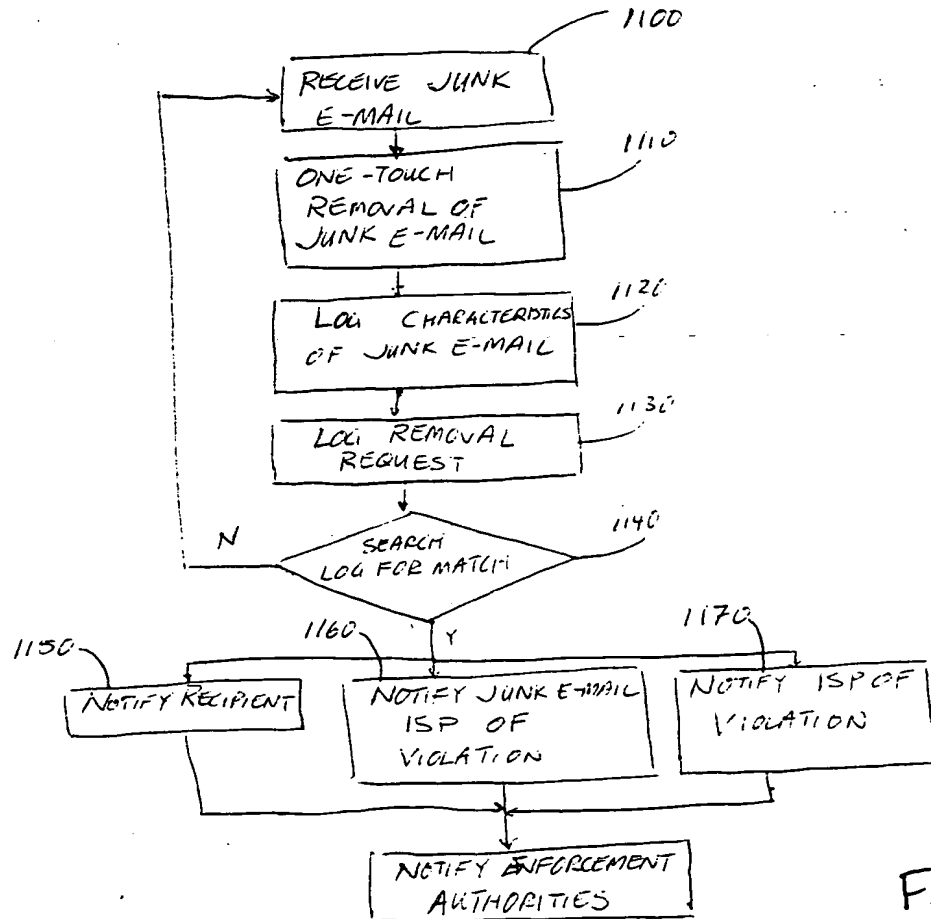 1100
RECEIVE JUNK
E-MAIL
1110
ONE-TOUCH
REMOVAL OF
JUNK E-MAIL
1120
LOG CHARACTERISTICS
OF JUNK E-MAIL
1130
LOG REMOVAL
REQUEST
1140
SEARCH
LOG FOR MATCH
N
Y
1150
1160
1170
NOTIFY RECIPIENT
NOTIFY JUNK E-MAIL
ISP OF
VIOLATION
NOTIFY ISP OF
VIOLATION
NOTIFY ENFORCEMENT
AUTHORITIES